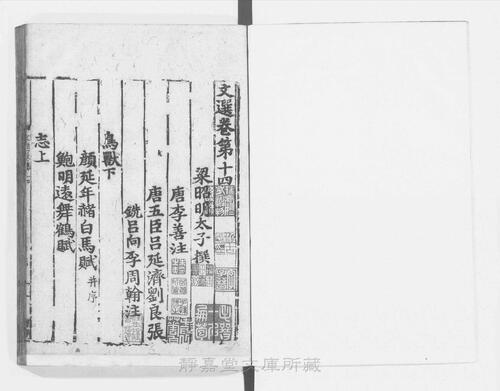 文選卷第十四
梁昭明太子撰
唐李善注
唐五臣呂延濟劉良張
銑呂向李周翰注
鳥獸下
顏延年赭白馬賦并序
鮑明遠舞鶴賦
志上
靜嘉堂文庫所藏